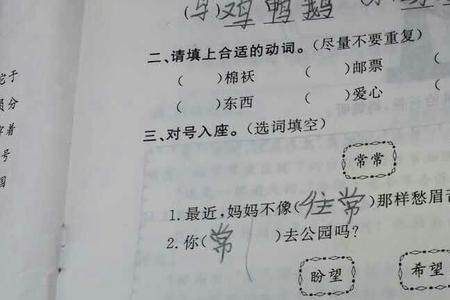 (鸟)鸡鸭鹅
二、请填上合适的动词。(尽量不要重复)
( )棉袄 ( )邮票 (
( )东西 ( )爱心 (
三、对号入座。(选词填空)
常常
1.最近,妈妈不像(往常)那样愁眉
2.你(常 )去公园吗?
盼望 希望
于
员分
着
号